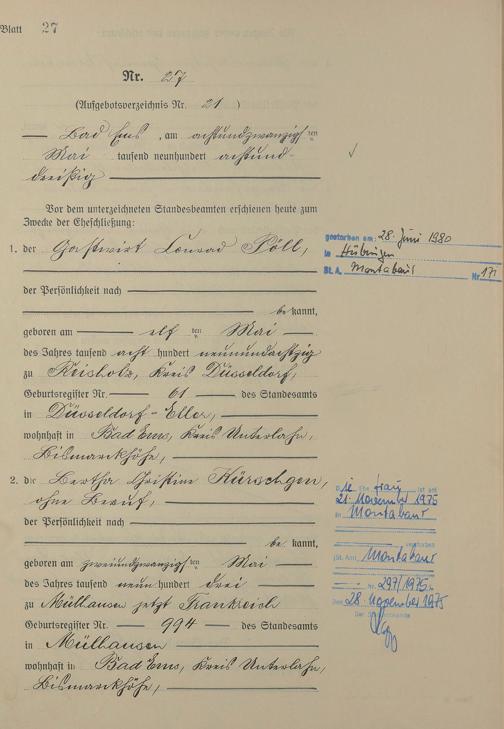 Blatt 27
Nr. 27
(Aufgebotsverzeichnis Nr. 21 )
Bad Ems, am achtundzwanzigsten
Mai tausend neunhundert achtund-
dreißig
Vor dem unterzeichneten Standesbeamten erschienen heute zum
Zwecke der Eheschließung:
1. der Gastwirt Conrad Pöll,
der Persönlichkeit nach
bekannt,
geboren am elften Mai
des Jahres tausend acht hundert neunundachtzig
zu Reisholz, Kreis Düsseldorf,
Geburtsregister Nr. 61 des Standesamts
in Düsseldorf-Eller,
wohnhaft in Bad Ems, Kreis Unterlahn,
Bismarckhöhe,
gestorben am: 28. Juni 1980
in Hübingen
St. A. Montabaur Nr 171
2. die Bertha Christine Kürschgen,
ohne Beruf,
der Persönlichkeit nach
bekannt,
geboren am zweiundzwanzigsten Mai
des Jahres tausend neun hundert drei
zu Mülhausen jetzt Frankreich
Geburtsregister Nr. 994 des Standesamts
in Mülhausen
wohnhaft in Bad Ems, Kreis Unterlahn,
Bismarckhöhe,
Die Ehefrau ist am
21. November 1975
in Montabaur
verstorben
(St. Amt Montabaur
Nr. 297/1975
Den 28. November 1975
Der Standesbeamte